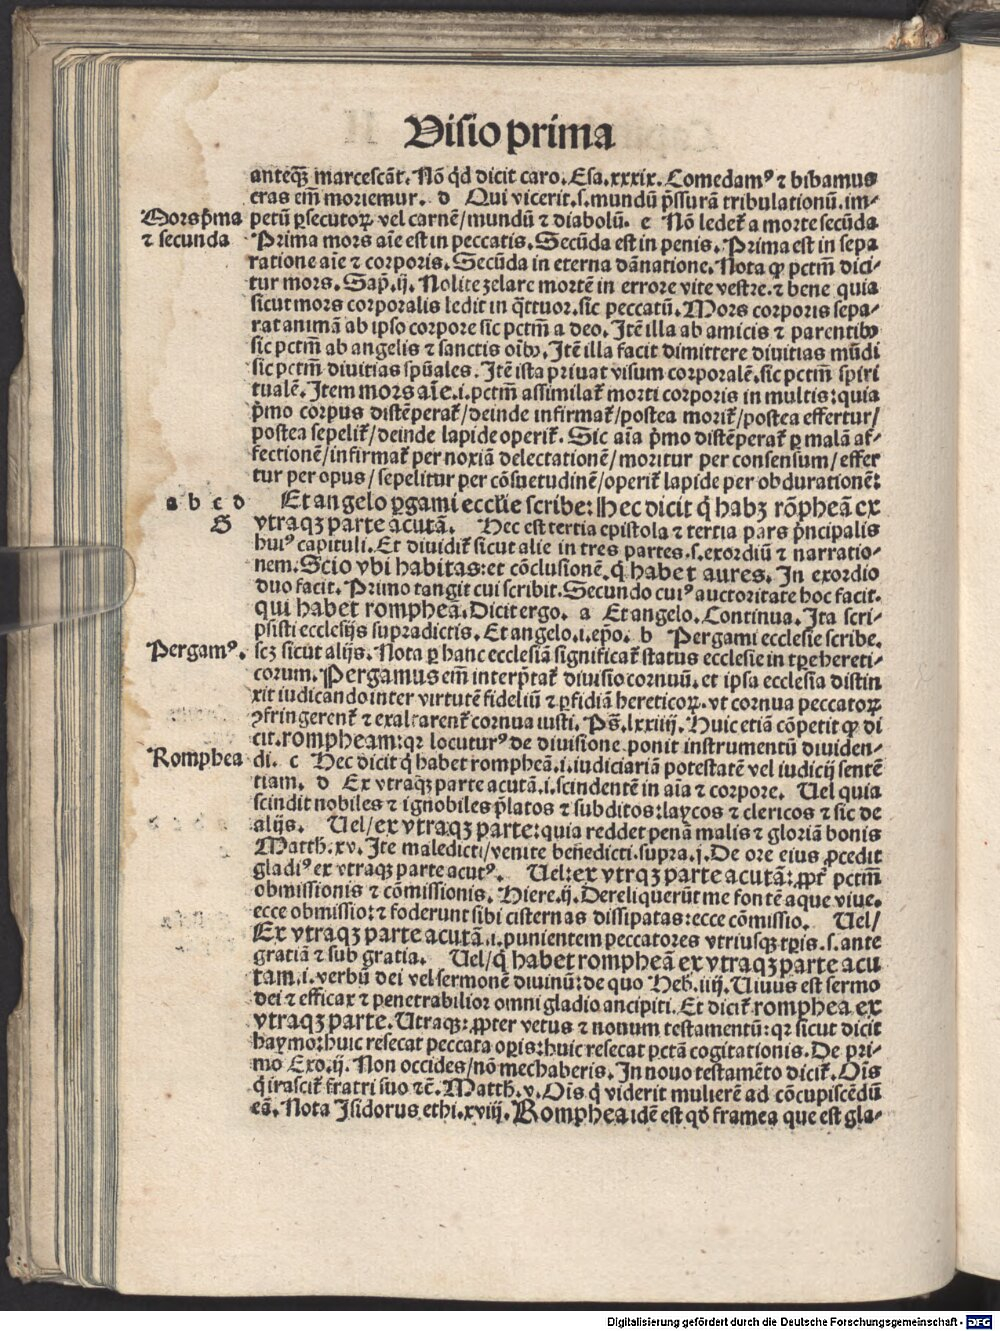 Visio prima
anteq̄ꝫ marcescāt. Nō q̇d dicit caro. Esa. xxxix. Comedam⁹ ⁊ bibamus
cras em̄ moriemur. d Qui vicerit. s. mundū p̄ssurā tribulationū. im⸗
Mors p̄ma
⁊ secunda
petū ꝑsecutoꝝ vel carnē/mundū ⁊ diabolū. e Nō ledet̄ a morte secūda
Prima mors aīe est in peccatis. Secūda est in penis. Prima est in sepa
ratione aīe ⁊ corporis. Secūda in eterna dānatione. Nota ꝙ pctm̄ dici⸗
tur mors. Sap̄. ij. Nolite zelare mortē in errore vite vestre. ⁊ bene quia
sicut mors corporalis ledit in q̄ttuor. sic peccatū. Mors corporis sepa⸗
rat animā ab ipso corpore sic pctm̄ a deo. Itē illa ab amicis ⁊ parentibꝫ
sic pctm̄ ab angelis ⁊ sanctis oībꝫ. Itē illa facit dimittere diuitias mūdi
sic pctm̄ diuitias spūales. Itē ista priuat visum corporalē. sic pctm̄ spiri
tualē. Item mors aīe. i. pctm̄ assimilat̄ morti corporis in multis: quia
p̄mo corpus distēperat̄/deinde infirmat̄/postea morit̄/postea effertur/
postea sepelit̄/deinde lapide operit̄. Sic aīa p̄mo distēperat̄ ꝑ malā af⸗
fectionē/infirmat̄ per noxiā delectationē/moritur per consensum/effer
tur per opus/sepelitur per cōsuetudinē/operit̄ lapide per obdurationē:
a b c d
S
Et angelo ꝑgami eccl̄ie scribe: Hec dicit q̇ habꝫ rōpheā ex
vtraqꝫ parte acutā. Hec est tertia epistola ⁊ tertia pars p̄ncipalis
hui⁹ capituli. Et diuidit̄ sicut alie in tres partes. s. exordiū ⁊ narratio⸗
nem. Scio vbi habitas: et cōclusionē. q̇ habet aures. In exordio
duo facit. Primo tangit cui scribit. Secundo cui⁹ auctoritate hoc facit.
qui habet rompheā. Dicit ergo. a Et angelo. Continua. Ita scri⸗
psisti ecclesijs supradictis. Et angelo. i. ep̄o. b Pergami ecclesie scribe.
Pergam⁹.
scꝫ sicut alijs. Nota ꝑ hanc ecclesiā significat̄ status ecclesie in tp̄e hereti⸗
corum. Pergamus em̄ interp̄tat̄ diuisio cornuū. et ipsa ecclesia distin
xit iudicando inter virtutē fideliū ⁊ ꝑfidiā hereticoꝝ. vt cornua peccatoꝝ
ꝯfringerent̄ ⁊ exaltarent̄ cornua iusti. Ps̄. lxxiiij. Huic etiā cōpetit ꝙ di
cit. rompheam: qꝛ locutur⁹ de diuisione ponit instrumentū diuiden⸗
Romphea
di. c Hec dicit q̇ habet rompheā. i. iudiciariā potestatē vel iudicij sentē
tiam. d Ex vtraqꝫ parte acutā. i. scindentē in aīa ⁊ corpore. Uel quia
scindit nobiles ⁊ ignobiles p̄latos ⁊ subditos: laycos ⁊ clericos ⁊ sic de
alijs. Uel/ex vtraqꝫ parte: quia reddet penā malis ⁊ gloriā bonis
Matth. xv. Ite maledicti/venite benedicti. supra. j. De ore eius ꝓcedit
gladi⁹ ex vtraqꝫ parte acut⁹. Uel: ex vtrqꝫ parte acutā: ꝓpt̄ pctm̄
obmissionis ⁊ cōmissionis. Hiere. ij. Dereliquerūt me fontē aque viue.
ecce obmissio: ⁊ foderunt sibi cisternas dissipatas: ecce cōmissio. Uel/
Ex vtraqꝫ parte acutā. i. punientem peccatores vtriusqꝫ tp̄is. s. ante
gratiā ⁊ sub gratia. Uel/q̇ habet rompheā ex vtraqꝫ parte acu
tam. i. verbū dei vel sermonē diuinū: de quo Heb. iiij. Uiuus est sermo
dei ⁊ efficax ⁊ penetrabilior omni gladio ancipiti. Et dicit̄ romphea ex
vtraqꝫ parte. Utraqꝫ: ꝓpter vetus ⁊ nouum testamentū: qꝛ sicut dicit
haymo: huic resecat peccata oꝑis: huic resecat pctā cogitationis. De pri⸗
mo Exo. ij. Non occides/nō mechaberis. In nouo testamēto dicit̄. Oīs
q̇ irascit̄ fratri suo ⁊c̄. Matth. v. Oīs q̇ viderit mulierē ad cōcupiscēdū
eā. Nota Isidorus ethi. xviij. Romphea idē est qd̄ framea que est gla⸗
Digitalisierung gefördert durch die Deutsche Forschungsgemeinschaft - DFG